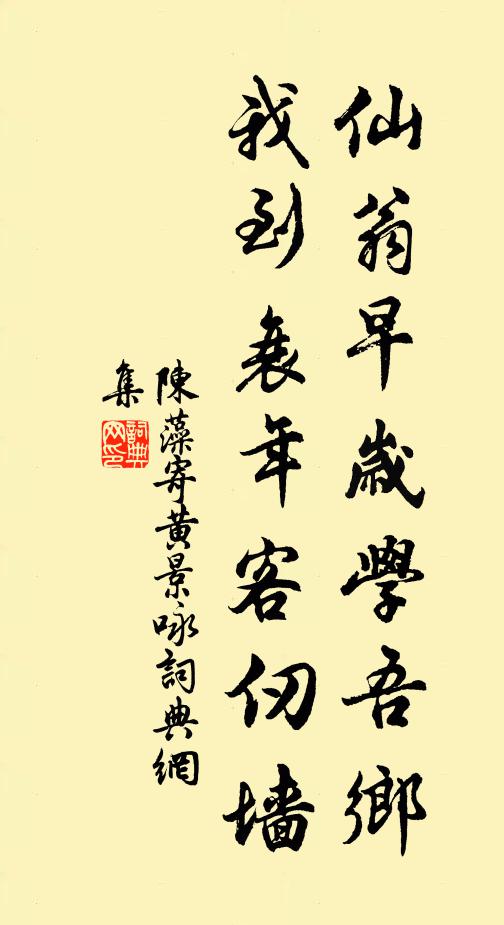 仙翁早歲學吾鄉
我到衰年客仞墻
陳藻寄黃景咏詞典網
集
詞典
网印